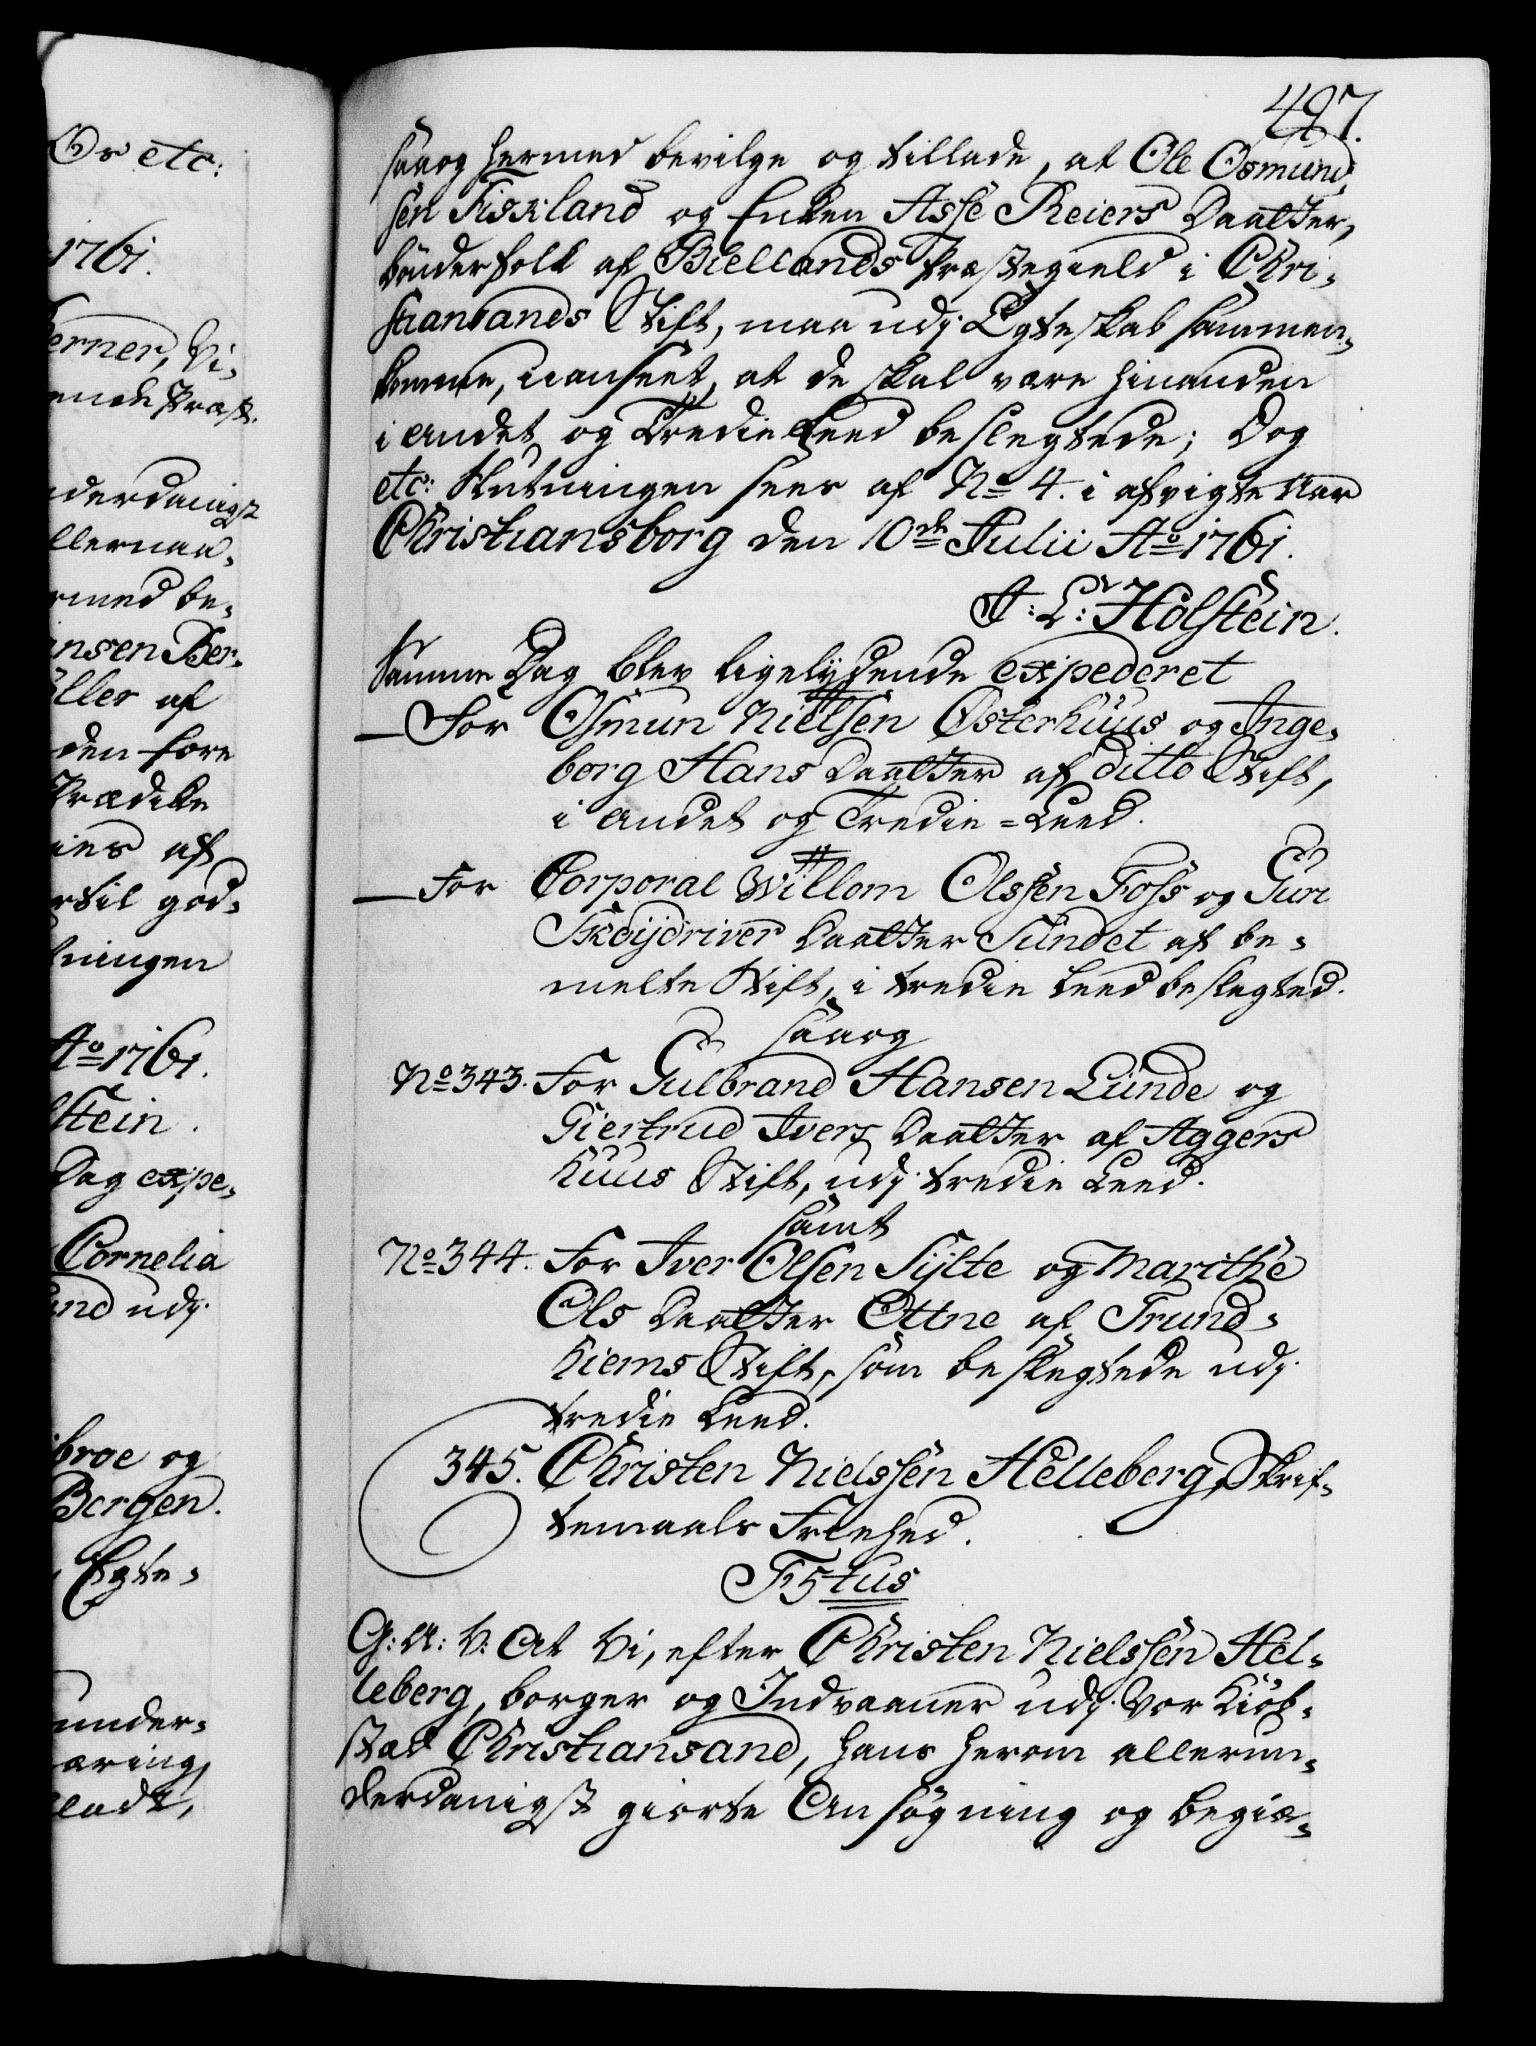 Os etc:
1761.
erner, Vi-
ende Præst.
derdanigst
llernaa-
rmed be-
ansen Ber-
ller af
den fore
Prædike
ines af
rtil god-
tningen
Ao 1761.
stein.
Dag expe-
Cornelia
and udj
broe og
Bergen.
Egte-
under-
æring,
llade,
497.
saaog hermed bevilge og tillade, at Ole Osmund-
sen Fiskland og Enken Asse Reiers Daatter,
bønderfolk af Biellands Præstegield i Chri-
stiansands Stift, maa udj Egteskab sammen-
komme, uanseet, at de skal være hinanden
i andet og Tredie Leed beslegtede; Dog
etc: Slutningen sees af No 4. i afvigte Aar
Christiansborg den 10de Julii Ao 1761.
J: L: Holstein.
Samme Dag blev ligelydende expederet
— For Osmun Nielsen Østerhuus og Inge-
borg Hans Daatter af ditto Stift,
i andet og Tredie-Leed.
— For Corporal Willom Olssen Foss og Guri
Skdijdriver Daatter Sundet af be-
melte Stift, i tredie Leed beslegted.
saaog
No 343. For Gulbrand Hansen Lunde og
Giertrud Ivers Daatter af Aggers
huus Stift, udj tredie Leed.
samt
No 344. For Iver Olsen Sylte og Marithe
Ols Daatter Ottne af Trund-
hiems Stift, som beslegtede udj
tredie Leed.
345. Christen Nielssen Helleberg, Skrif-
temaals Friehed.
F5tus
G: A: V: At Vi, efter Christen Nielssen Hel-
leberg, borger og Indvaaner udj Vor Kiøb-
stad Christiansand, hans herom allerun-
derdanigst giorte Ansøgning og begiæ-